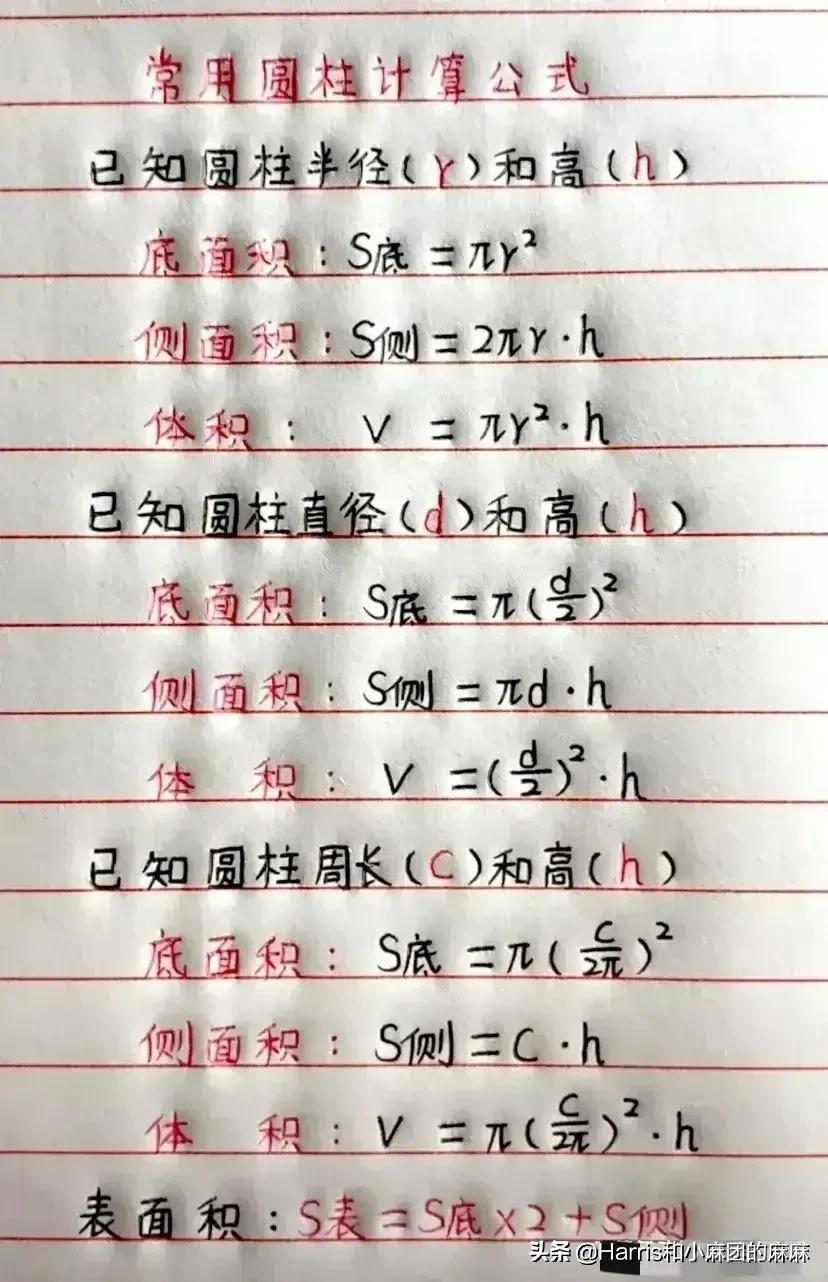 常用圆柱计算公式
已知圆柱半径(r)和高(h)
底面积:S底=πr²
侧面积:S侧=2πr·h
体积: V =πr²·h
已知圆柱直径(d)和高(h)
底面积: S底=π(d/2)²
侧面积: S侧=πd·h
体 积: V =(d/2)²·h
已知圆柱周长(C)和高(h)
底面积: S底=π(C/2π)²
侧面积: S侧=C·h
体 积: V =π(C/2π)²·h
表面积:S表=S底×2+S侧
头条 @Harris和小麻团的麻麻